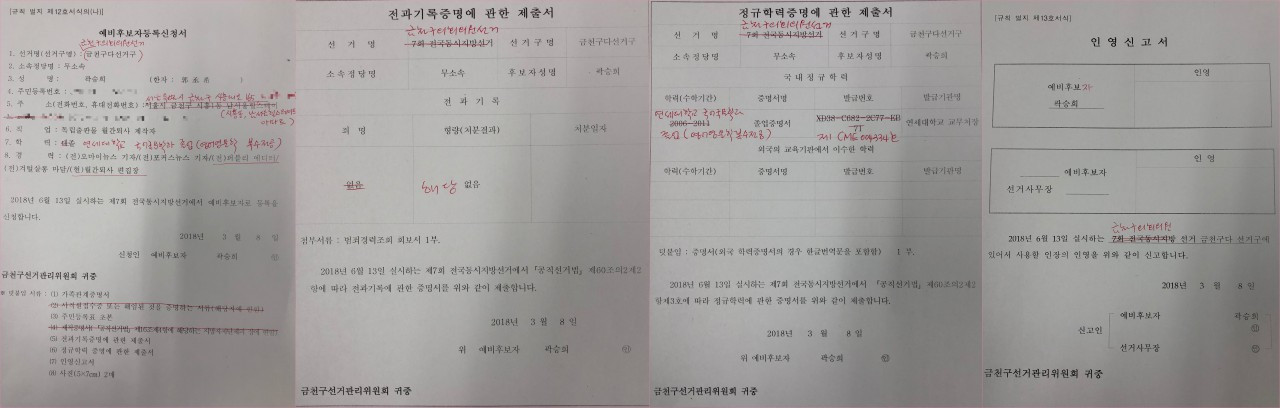 [규칙 별지 제12호서식의(나)]
예비후보자등록신청서
금천구의회의원선거
1. 선거명(선거구명) :
(금천구다선거구)
2. 소속정당명 : 무소속
3. 성 명 : 곽승희 (한자 : )
4. 주민등록번호 :
5. 주 소(전화번호, 휴대전화번호) :
6. 직 업 : 독립출판물 월간퇴사 제작자
7. 학 력 : 연세대학교
8. 경 력 : (전)오마이뉴스 기자/(전)포커스뉴스 기자/(전)퍼블리 에디터/
(전)거탑상통 마담/(현)월간퇴사 편집장
2018년 6월 13일 실시하는 제7회 전국동시지방선거에서 예비후보자로 등록을
신청합니다.
2018년 3 월 8 일
신청인 예비후보자 곽승희 ㊞
금천구선거관리위원회 귀중
※ 덧붙임 서류 : (1) 가족관계증명서
(3) 주민등록표 초본
(5) 전과기록증명에 관한 제출서
(6) 정규학력 증명에 관한 제출서
(7) 인영신고서
(8) 사진(5×7cm) 2매
전과기록증명에 관한 제출서
금천구의회의원선거
선 거 명 7회 전국동시지방선거 선 거 구 명 금천구다선거구
소속정당명 무소속 후보자성명 곽승희
전 과 기 록
죄 명 형량(처분결과) 처분일자
없음 해당 없음
첨부서류 : 범죄경력조회 회보서 1부.
2018년 6월 13일 실시하는 제7회 전국동시지방선거에서 「공직선거법」제60조의2제2
항에 따라 전과기록에 관한 증명서를 위와 같이 제출합니다.
2018년 3 월 8 일
위 예비후보자 곽승희 ㊞
금천구선거관리위원회 귀중
정규학력증명에 관한 제출서
금천구의회의원선거
선 거 명 7회 전국동시지방선거 선 거 구 명 금천구다선거구
소속정당명 무소속 후보자성명 곽승희
국 내 정 규 학 력
학력(수학기간) 증명서명 발급번호 발급기관명
연세대학교
2006-2011 졸업증명서 XD38-C682-2C77-EB 연세대학교 교무처장
외국의 교육기관에서 이수한 학력
학력(수학기간) 증명서명 발급번호 발급기관명
덧붙임 : 증명서(외국 학력증명서의 경우 한글번역문을 포함함) 1 부.
2018년 6월 13일 실시하는 제7회 전국동시지방선거에서 「공직선거법」제60조의2제2
항제3호에 따라 정규학력에 관한 증명서를 위와 같이 제출합니다.
2018년 3 월 8 일
위 예비후보자 곽승희 ㊞
금천구선거관리위원회 귀중
[규칙 별지 제13호서식]
인 영 신 고 서
인 영
예비후보자
곽승희
인 영
예비후보자
선거사무장
금천구의회의원
2018년 6월 13일 실시하는 7회 전국동시지방 선거 금천구다 선거구에
있어서 사용할 인장의 인영을 위와 같이 신고합니다.
2018년 3 월 8 일
신고인
예비후보자 곽승희
㊞
선거사무장 ㊞
금천구선거관리위원회 귀중